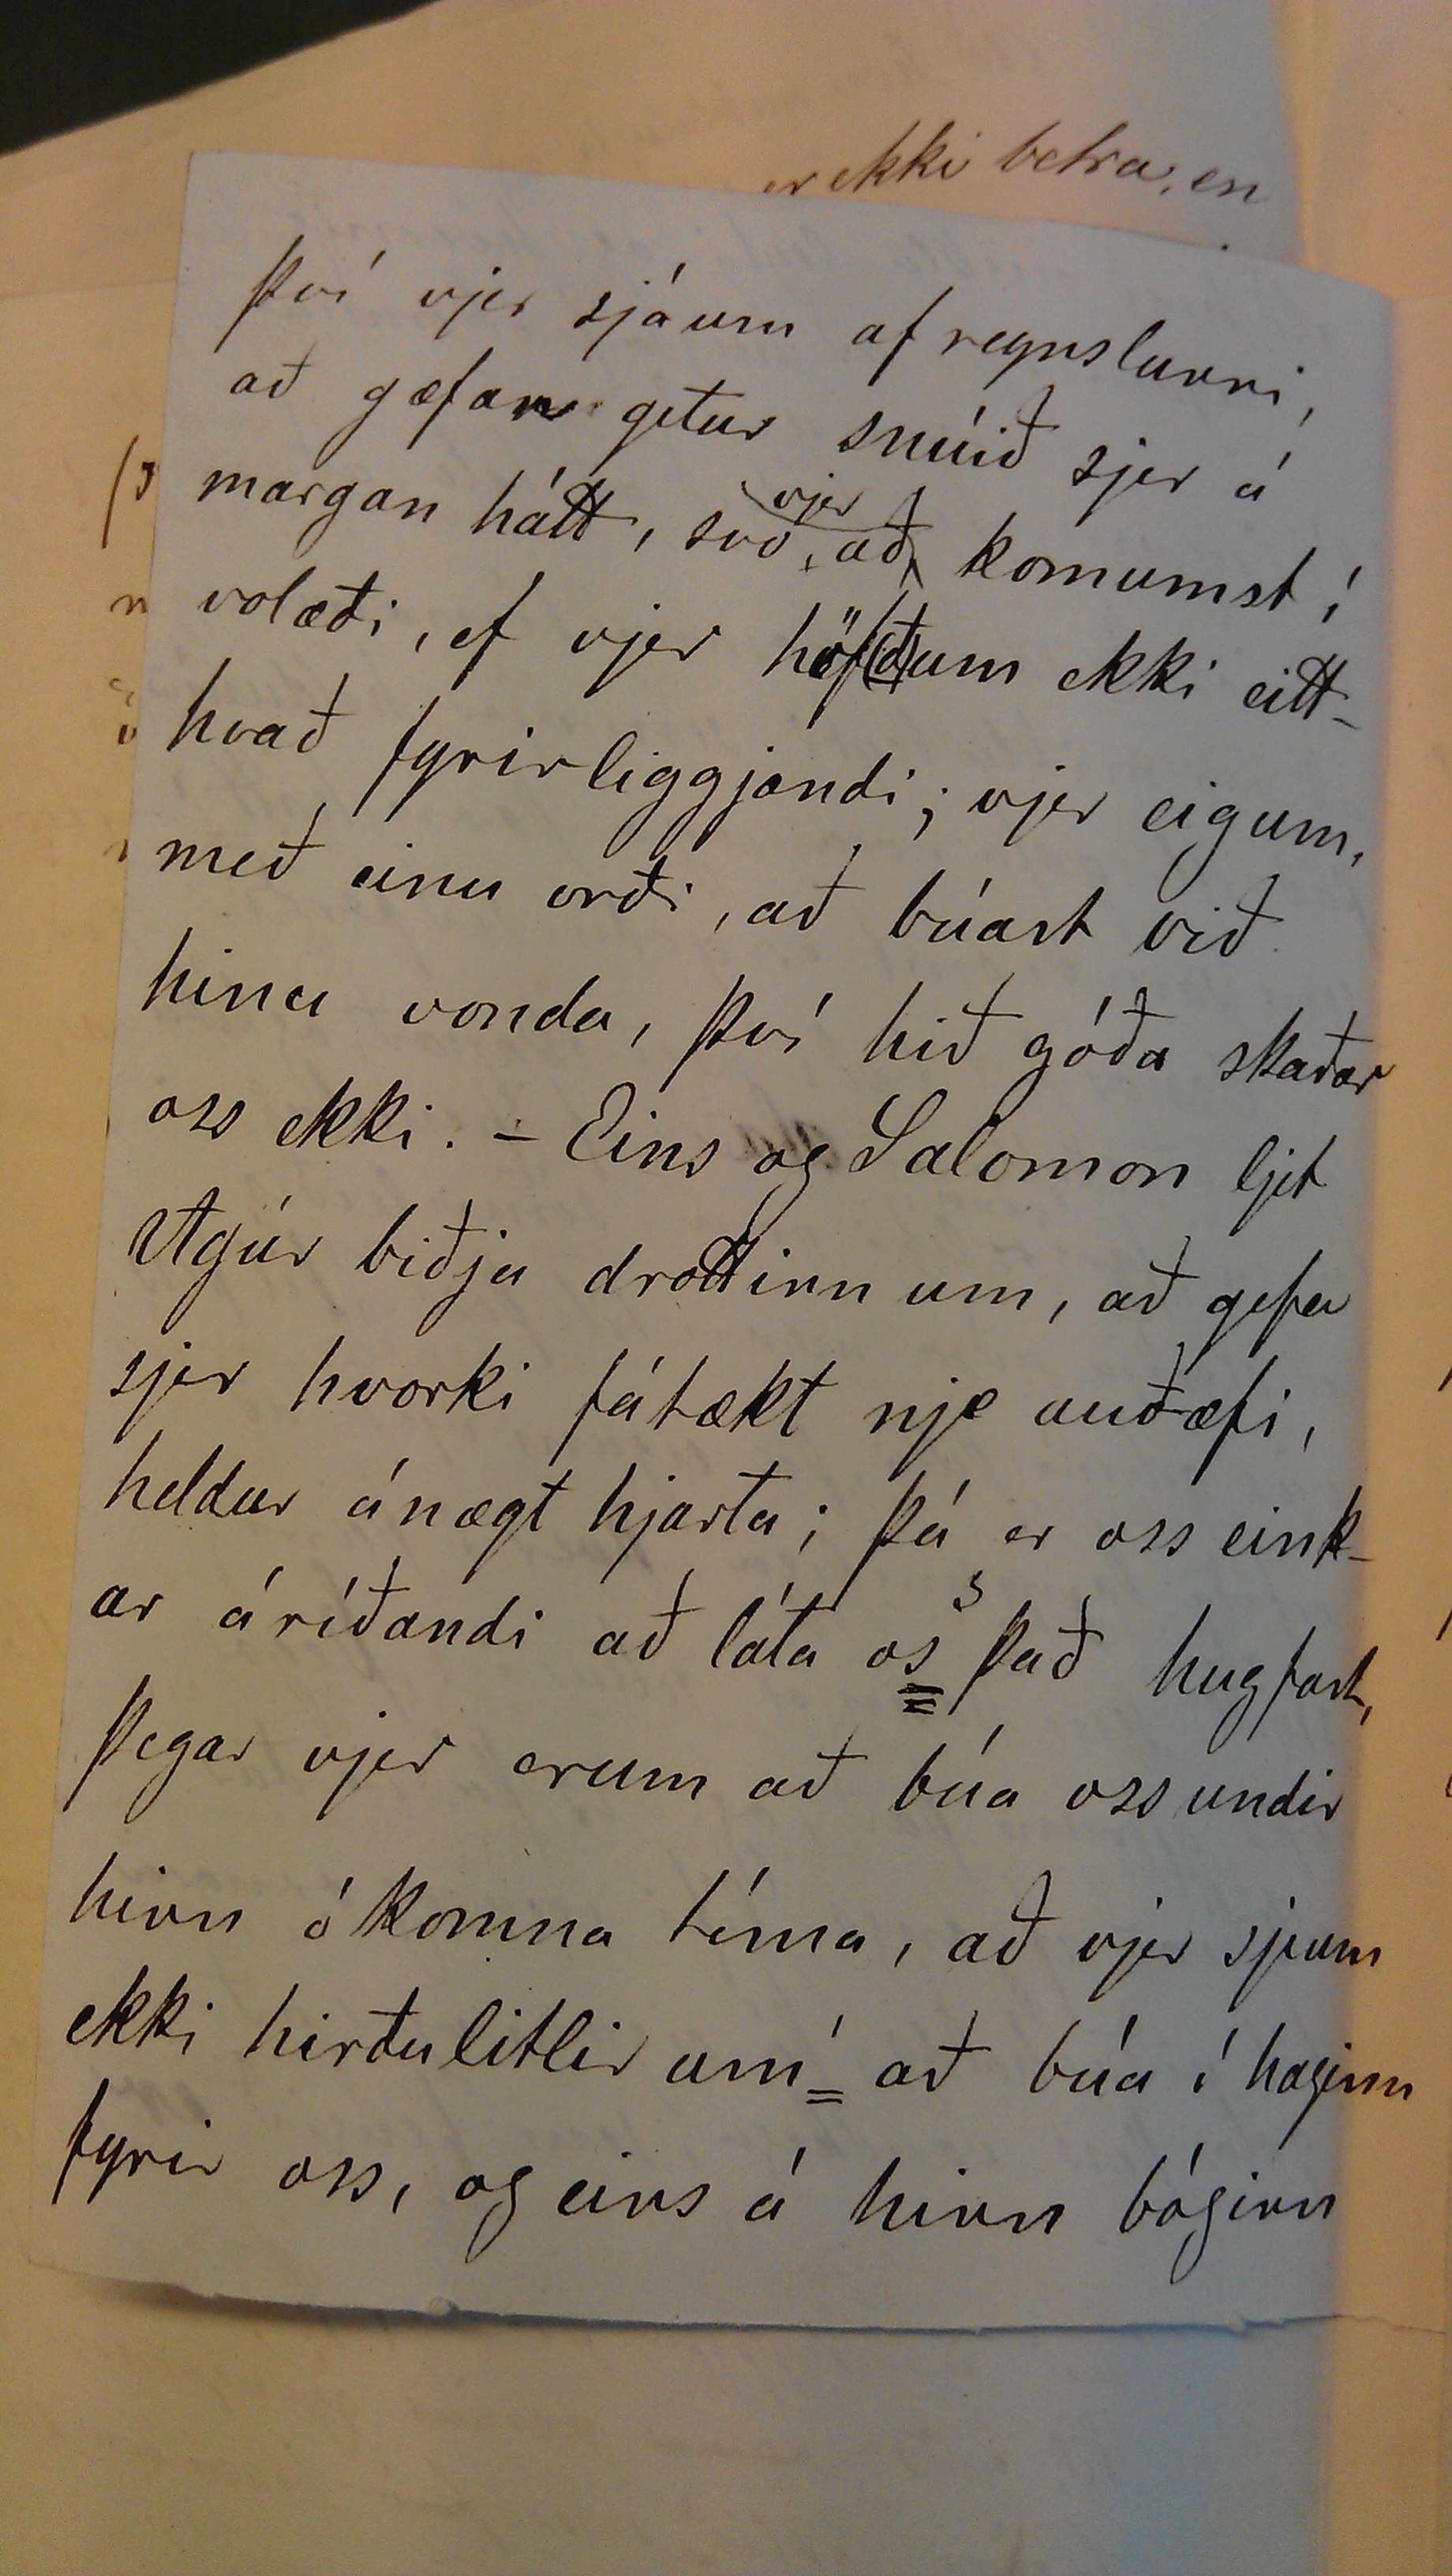 er ekki betra, en
Því vjer sjáum af reynslunni,
að gæfan getur snúið sjer á
margan hátt, svo, að vjer komumst í
volæði, ef vjer höf(ð)um ekki eitt-
hvað fyrirliggjandi; vjer eigum,
með einu orði, að búast við
hinu vonda, því hið góða skaðar
oss ekki. – Eins og Salomon ljet
Agúr biðja drottinn um, að gefa
sjer hvorki fátækt nje auðæfi,
heldur ánægt hjarta; þá er oss eink-
ar áríðandi að láta oss það hugfast,
þegar vjer erum að búa oss undir
hinn ókomna tíma, að vjer sjeum
ekki hirðulitlir um að búa í haginn
fyrir oss, og eins á hinn bóginn